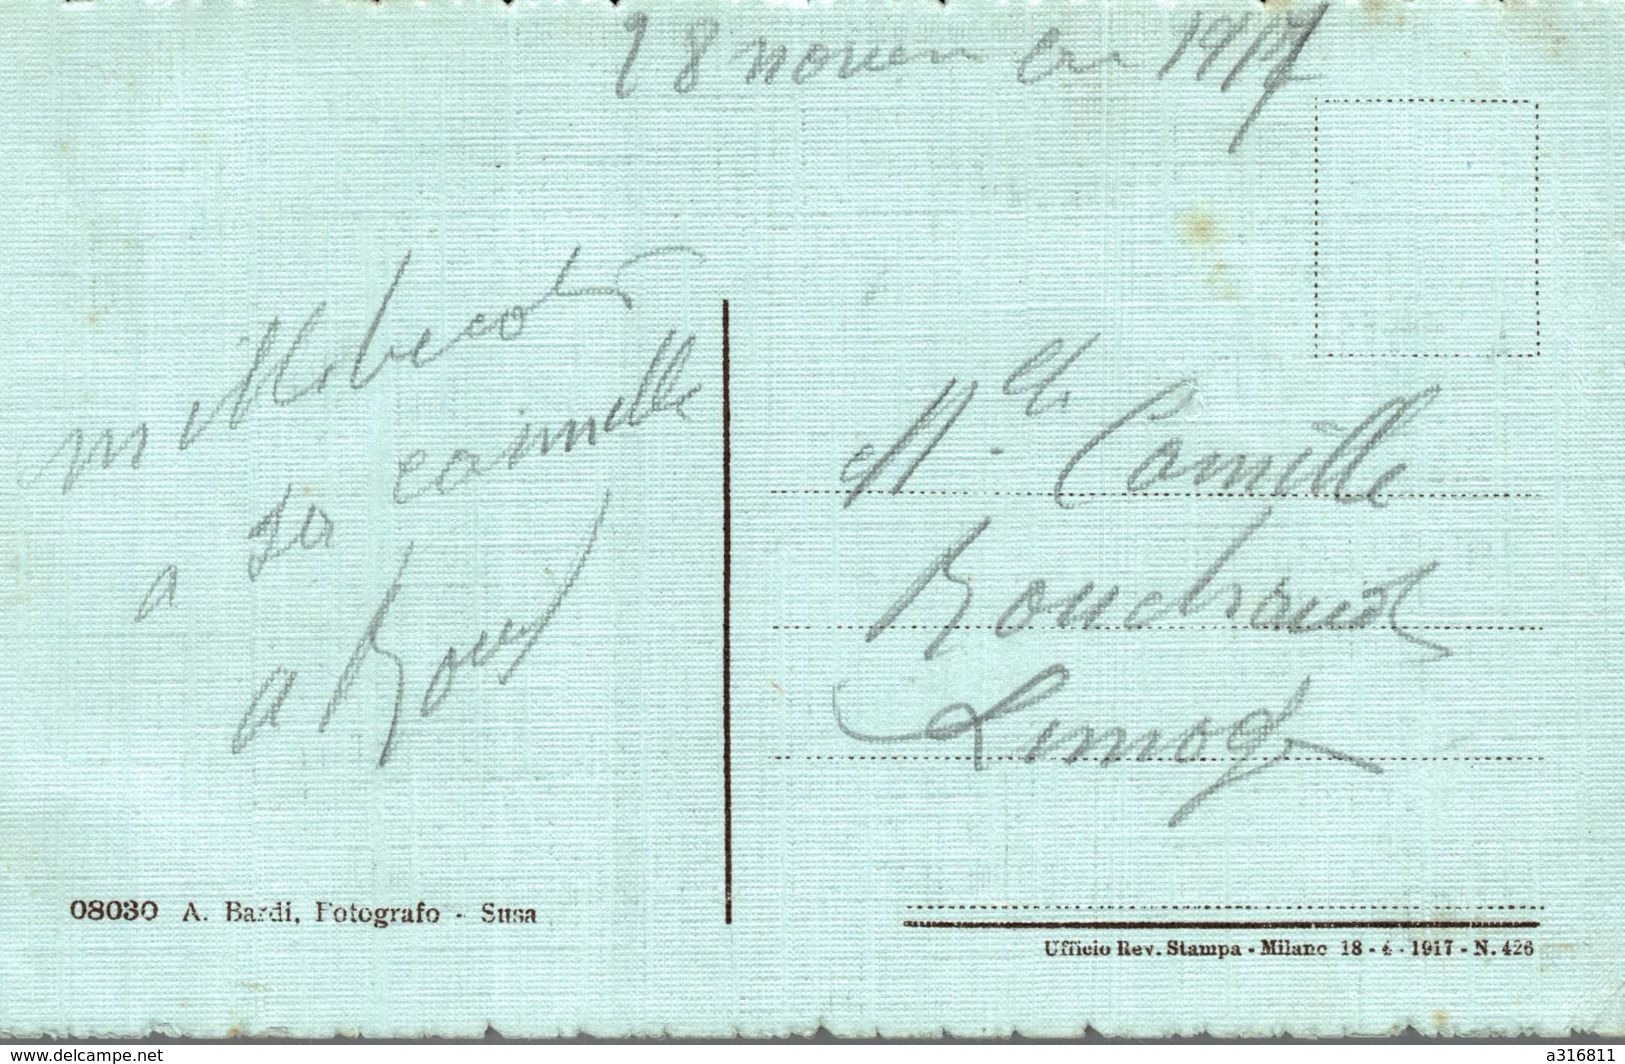 28 novembre 1917
mille becots
a ta camille
a Roux
Mlle Camille
Bouchaud
Limoges
08030 A. Bardi, Fotografo - Susa
Ufficio Rev. Stampa - Milano 18 - 4 - 1917 - N. 426
www.delcampe.net
a316811